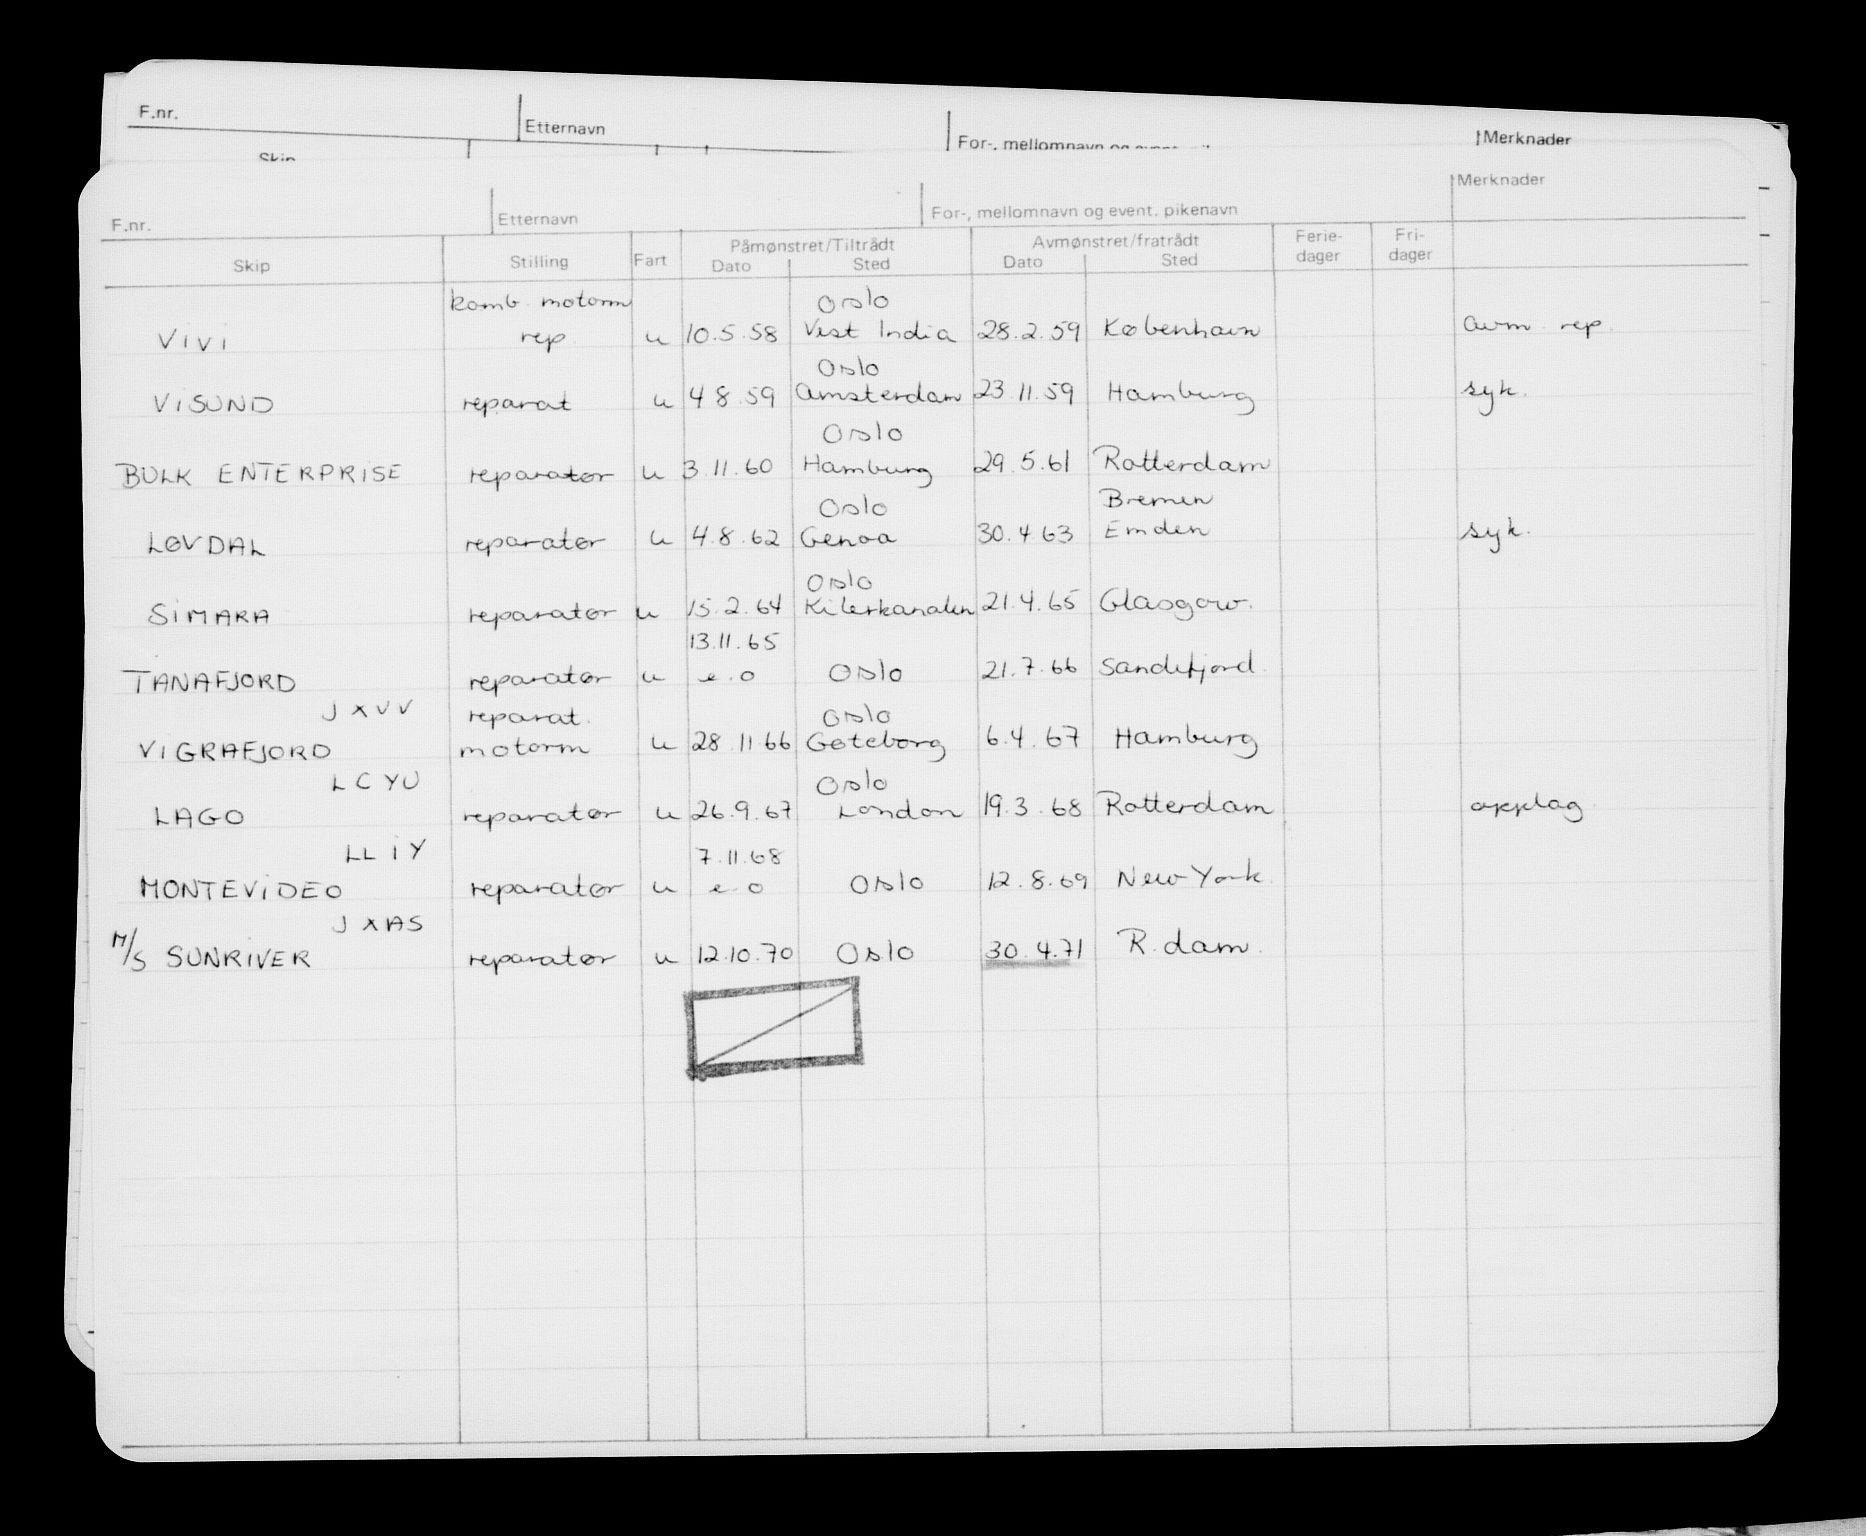 F.nr. Etternavn For-, mellomnavn og event. Merknader
Skip
F.nr. Etternavn For-, mellomnavn og event. pikenavn Merknader
Påmønstret/Tiltrådt Avmønstret/fratrådt Ferie- Fri-
Skip Stilling Fart Dato Sted Dato Sted dager dager
komb. motorm Oslo
ViVi rep. u 10.5.58 Vest India 28.2.59 København avm rep.
Oslo
ViSUND reparat u 4 8.59 Amsterdam 23.11.59 Hamburg syk.
Oslo
BULK ENTERPRiSE reparatør u 3.11.60 Hamburg 29.5.61 Rotterdam
Oslo Bremen
LØVDAL reparatør u 4.8.62 Genoa 30.4 63 Emden syk.
Oslo
SiMARA reparatør u 15.2.64 Kilerkanalen 21.4.65 Glasgow.
13.11.65
TANAFJORD reparatør u e.o Oslo 21.7.66 Sandefjord.
JXVV reparat. Oslo
ViGRAFJORD motorm u 28.11 66 Gøteborg 6.4.67 Hamburg
LCYU Oslo
LAGO reparatør u 26.9.67 London 19.3.68 Rotterdam opplag
LLiY 7.11.68
MONTEViDEO reparatør u e.o Oslo 12.8.69 New York.
JXAS
M/S SUNRiVER reparatør u 12.10.70 Oslo 30.4.71 R.dam.